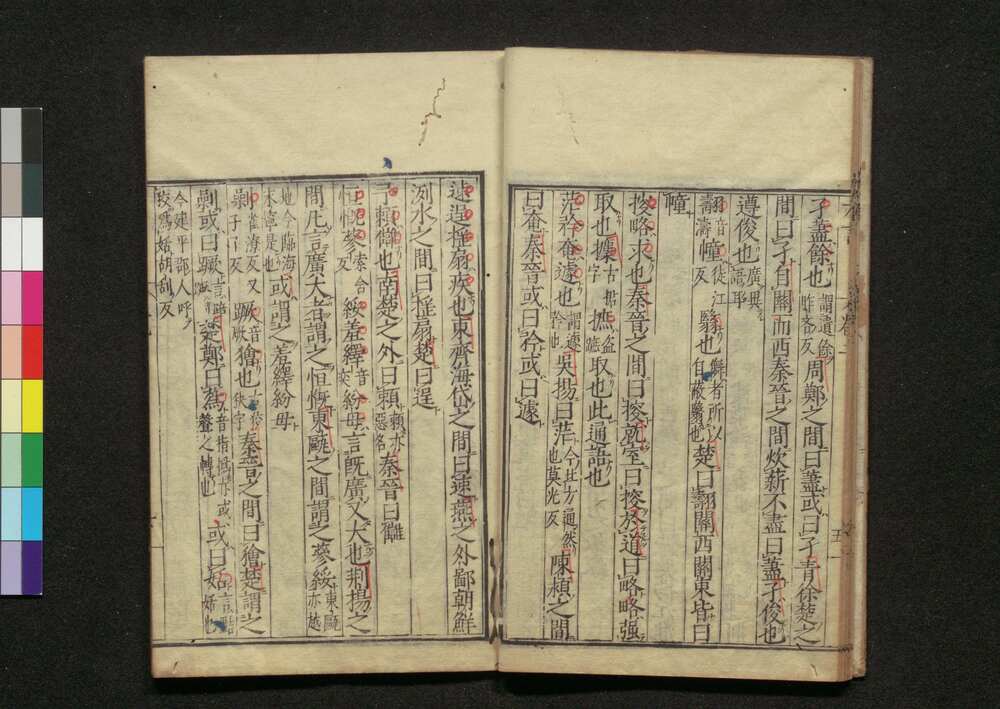 孑藎餘也謂遺餘昨吝反周鄭之間曰藎或曰孑青徐楚之
間曰孑自關而西秦晉之間炊薪不盡曰藎孑俊也
遵俊也廣異語耳
翿音濤幢徒江反翳也儛者所以自蔽翳也楚曰翿關西關東皆曰
幢
挍略求也秦晉之間曰挍就室曰挍於道曰略略强
取也攈古捃字摭盜蹠取也此通語也
茫矜奄遽也謂遽矜也吳揚曰茫今北方通然也莫光反陳潁之間
曰奄秦晉或曰矜或曰遽
速逞搖扇疾也東齊海岱之間曰速燕之外鄙朝鮮
洌水之間曰搖扇楚曰逞
予賴讎也南楚之外曰賴賴亦惡名秦晉曰讎
恒慨蔘索含反綏羞繹音奕紛毋言既廣又大也荊揚之
間凡言廣大者謂之恒慨東甌之間謂之蔘綏東甌亦越
地今臨海永寧是也或謂之羞繹紛毋
剿雀潦反又子了反蹶音厥獪也古狡狭字秦晉之間曰獪楚謂之
剿或曰蹶言踣蹶也楚鄭曰蒍音指撝亦或聲之轉也或曰姡言黠姡也
今建平郡人呼狡爲姡胡刮反